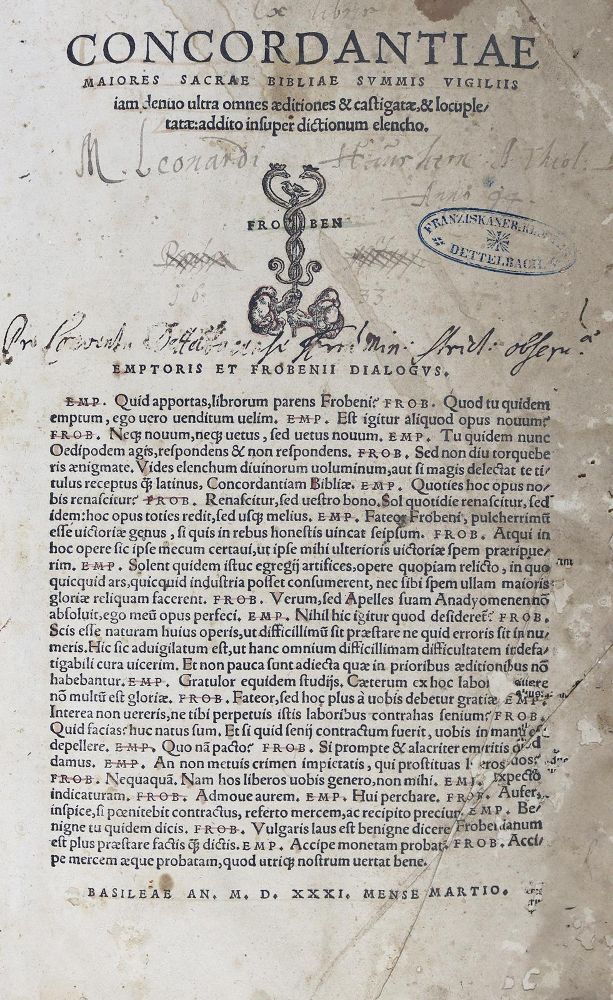 Ex libris
CONCORDANTIAE
MAIORES SACRAE BIBLIAE SVMMIS VIGILIIS
iam denuo ultra omnes æditiones & castigatæ, & locuple-
tatæ: addito insuper dictionum elencho.
M. Leonardi A Theol.
Anno 94
FRO BEN
FRANZISKANER-KLOSTER
DETTELBACH
16 33
Pro Conventu Dettelbacensi min: strict: observ:
EMPTORIS ET FROBENII DIALOGVS.
EMP. Quid apportas, librorum parens Frobeni? FROB. Quod tu quidem
emptum, ego uero uenditum uelim. EMP. Est igitur aliquod opus nouum?
FROB. Neq; nouum, neq; uetus, sed uetus nouum. EMP. Tu quidem nunc
Oedipodem agis, respondens & non respondens. FROB. Sed non diu torquebe
ris ænigmate. Vides elenchum diuinorum uoluminum, aut si magis delectat te ti-
tulus receptus q̃ latinus, Concordantiam Bibliæ. EMP. Quoties hoc opus no-
bis renascitur? FROB. Renascitur, sed uestro bono. Sol quotidie renascitur, sed
idem: hoc opus toties redit, sed usq; melius. EMP. Fateor Frobeni, pulcherrimũ
esse uictoriæ genus, si quis in rebus honestis uincat seipsum. FROB. Atqui in
hoc opere sic ipse mecum certaui, ut ipse mihi ulterioris uictoriæ spem præripue-
rim. EMP. Solent quidem istuc egregij artifices, opere quopiam relicto, in quo
quicquid ars, quicquid industria posset consumerent, nec sibi spem ullam maioris
gloriæ reliquam facerent. FROB. Verum, sed Apelles suam Anadyomenen nõ
absoluit, ego meũ opus perfeci. EMP. Nihil hic igitur quod desideret? FROB.
Scis esse naturam huius operis, ut difficillimũ sit præstare ne quid erroris sit in nu-
meris. Hic sic aduigilatum est, ut hanc omnium difficillimam difficultatem indefa-
tigabili cura uicerim. Et non pauca sunt adiecta quæ in prioribus æditionibus nõ
habebantur. EMP. Gratulor equidem studijs. Cæterum ex hoc labo
nõ multũ est gloriæ. FROB. Fateor, sed hoc plus à uobis debetur gratiæ EMP.
Interea non uereris, ne tibi perpetuis istis laboribus contrahas senium? FROB.
Quid facias? huc natus sum. Et si quid senij contractum fuerit, uobis in manu est
depellere. EMP. Quo nã pacto? FROB. Si prompte & alacriter emeritis quod
damus. EMP. An non metuis crimen impietatis, qui prostituas liberos tuos?
FROB. Nequaquã. Nam hos liberos uobis genero, non mihi. EMP. Expecto
indicaturam. FROB. Admoue aurem. EMP. Hui perchare. FROB. Aufer,
inspice, si pœnitebit contractus, referto mercem, ac recipito precium. EMP. Be-
nigne tu quidem dicis. FROB. Vulgaris laus est benigne dicere Frobenianum
est plus præstare factis q̃ dictis. EMP. Accipe monetam probatã FROB. Acci-
pe mercem æque probatam, quod utriq; nostrum uertat bene.
BASILEAE AN. M. D. XXXI. MENSE MARTIO.